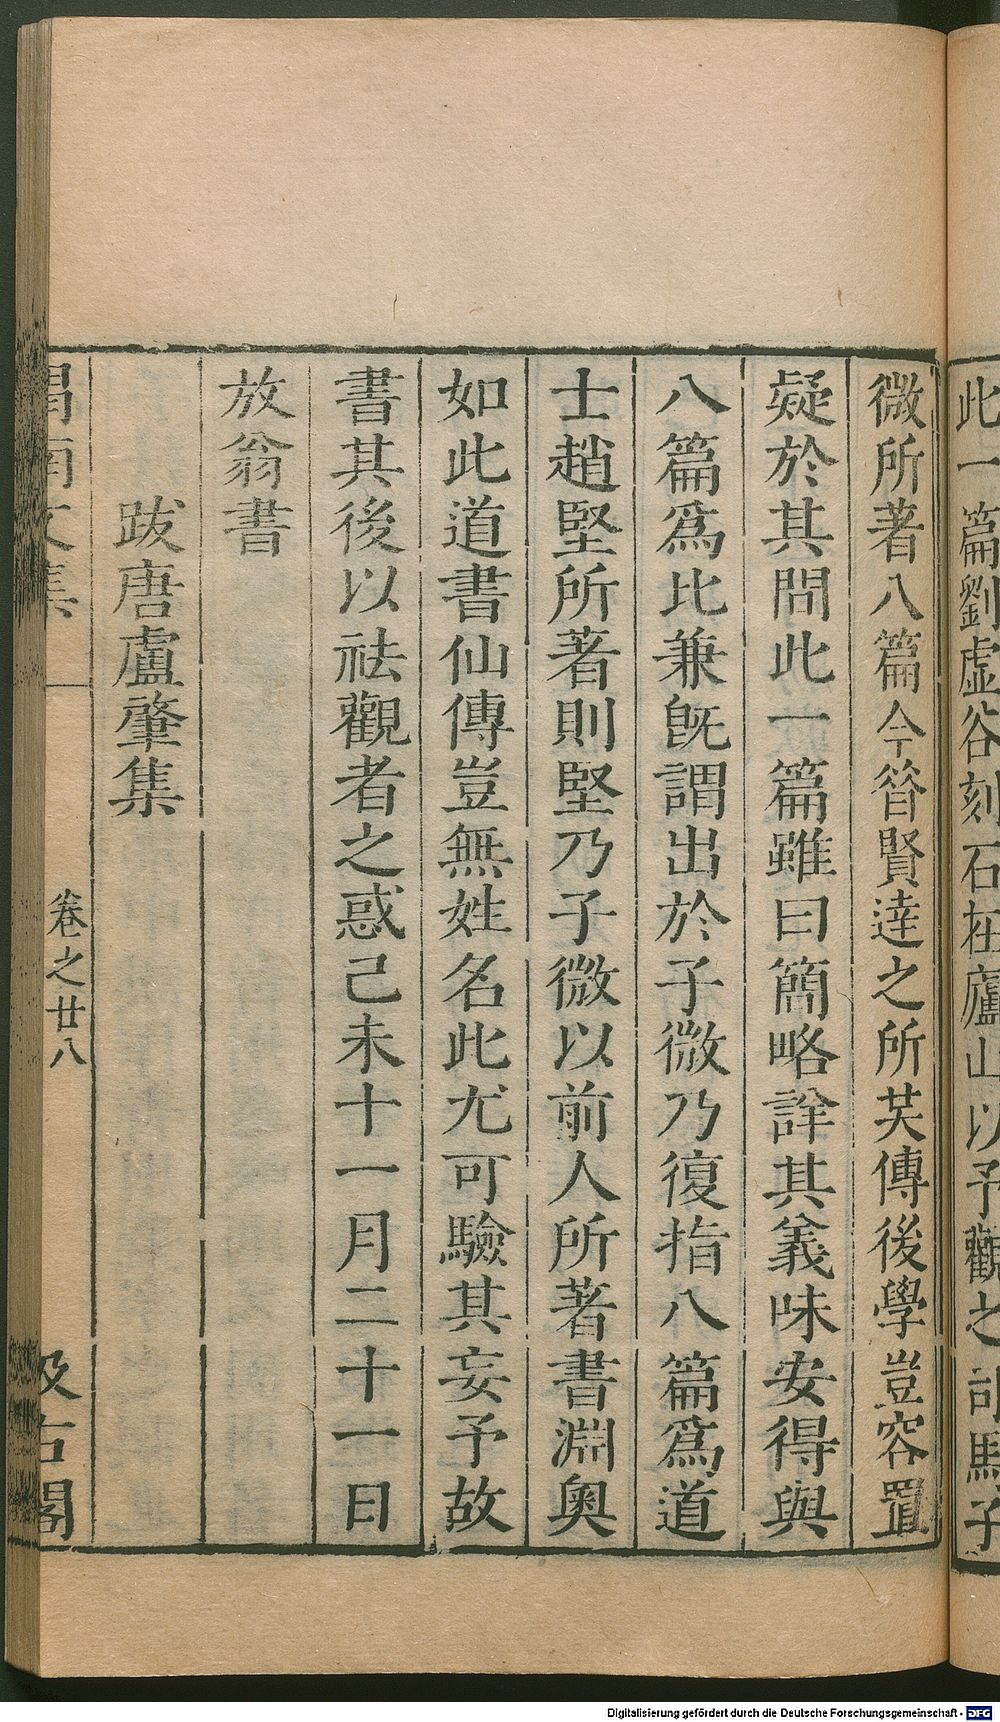 此一篇劉虛谷刻石在廬山以予觀之司馬子
微所著八篇今昝賢達之所共傳後學豈容置
疑於其間此一篇雖曰簡略詳其義味安得與
八篇爲比兼旣謂出於子微乃復指八篇爲道
士趙堅所著則堅乃子微以前人所著書淵奧
如此道書仙傳豈無姓名此尤可驗其妄予故
書其後以祛觀者之惑己未十一月二十一日
放翁書
跋唐盧肇集
渭南文集 卷之廿八 汲古閣
Digitalisierung gefördert durch die Deutsche Forschungsgemeinschaft - DFG